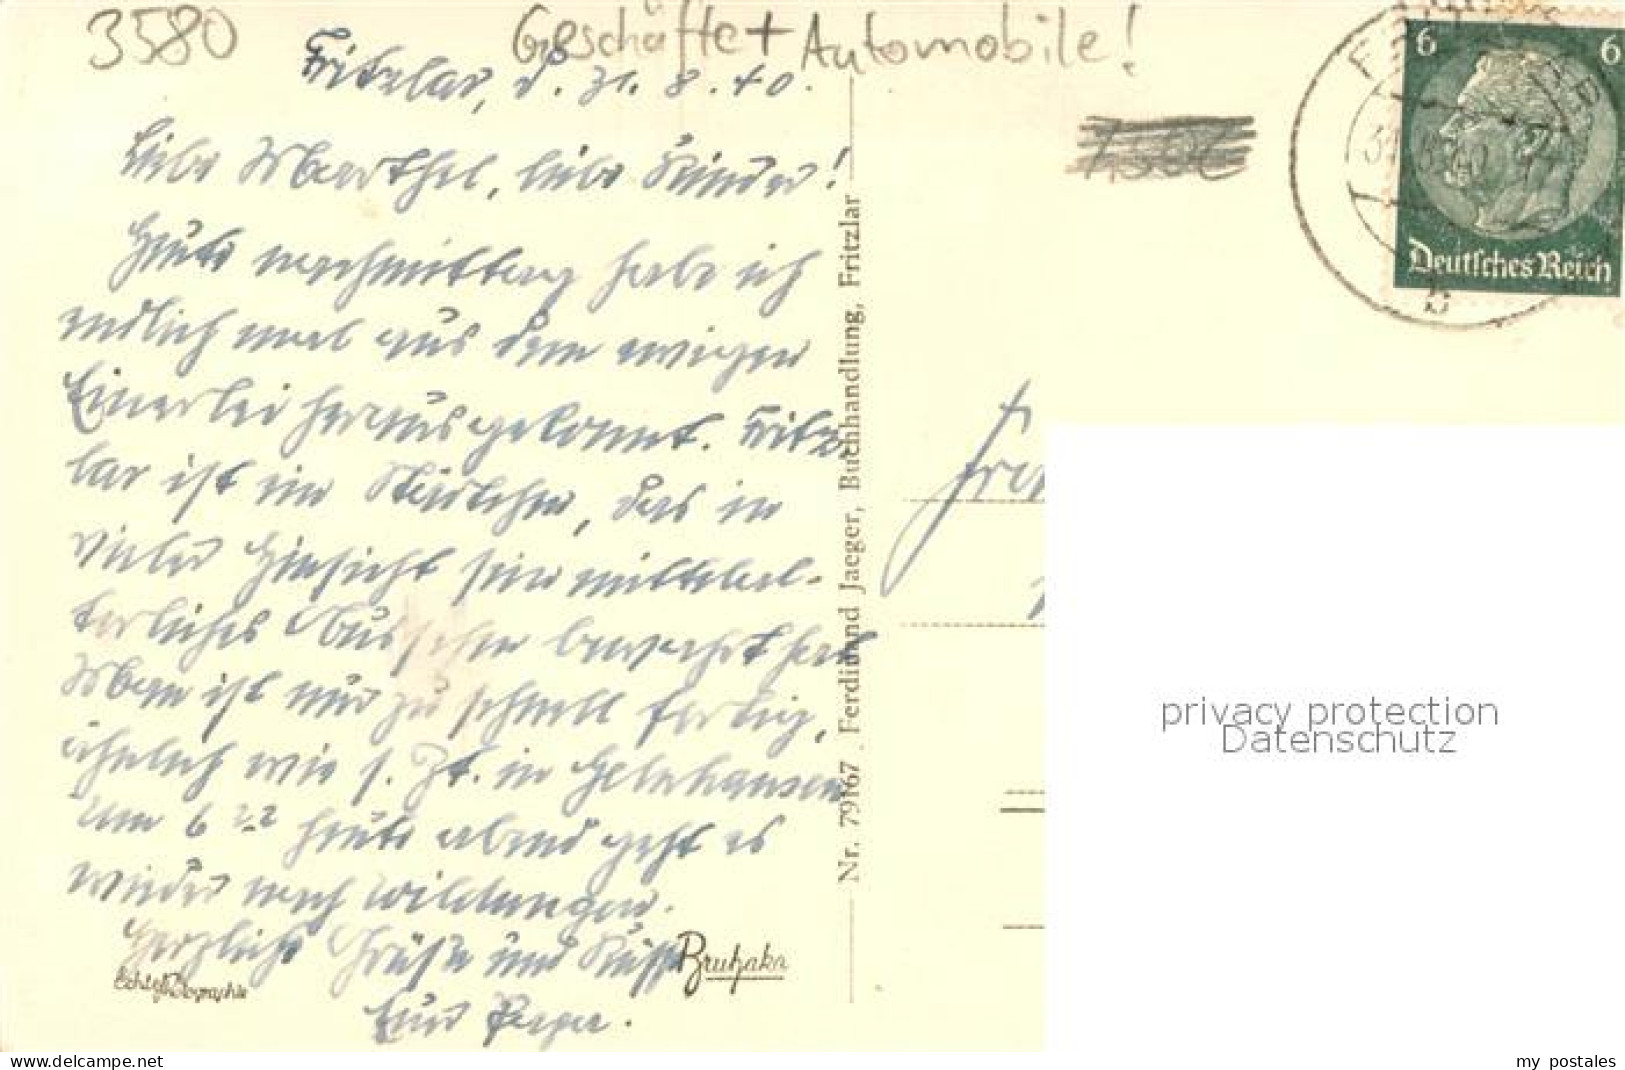 3580
Geschäfte + Automobile!
Fritzlar, d. 31. 8. 40.
Liebe Marthel, liebe Kinder!
Heute nachmittag habe ich
endlich mal aus dem ewigen
Einerlei herausgekonnt. Fritz-
lar ist ein Städtchen, das in
vieler Hinsicht sein mittelal-
terliches Aussehen bewahrt hat
Man ist nur zu schnell fertig,
ähnlich wie s. Zt. in Gelnhausen
Um 6 22 heute abend geht es
wieder nach Wildungen.
Herzliche Grüße und Küsse
Euer Papa.
Echte Photographie
Bruhaka
Nr. 79167 Ferdinand Jaeger, Buchhandlung, Fritzlar
6 6
Deutsches Reich
b
privacy protection
Datenschutz
www.delcampe.net
my_postales